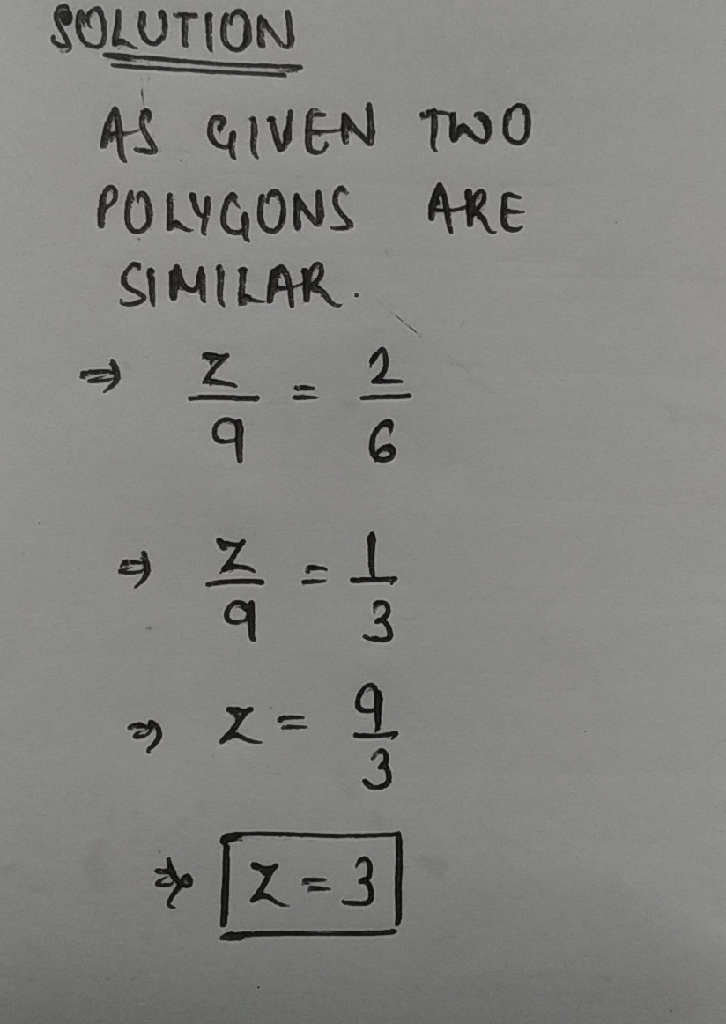 SOLUTION
AS GIVEN TWO
POLYGONS ARE
SIMILAR.
⇒ z/9 = 2/6
⇒ z/9 = 1/3
⇒ z = 9/3
⇒ z = 3